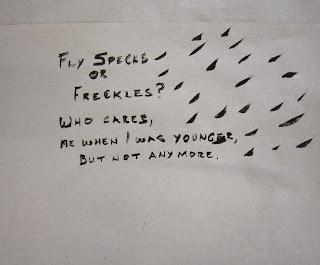 FLY SPECKS
OR
FRECKLES?
WHO CARES,
ME WHEN I WAS YOUNGER,
BUT NOT ANYMORE.